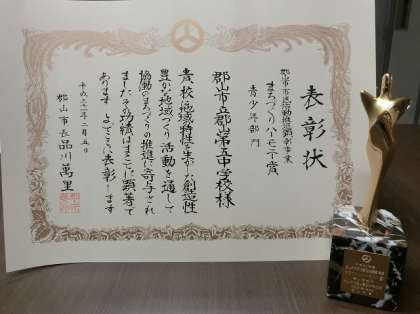 表彰状
郡山市市民活動推進顕彰事業
まちづくりハーモニー賞
青少年部門
郡山市立郡山第五中学校様
貴校は地域特性を生かした創造性
豊かな地域づくり活動を通して
協働のまちづくりの推進に寄与され
ましたその功績はまことに顕著で
あります よってここに表彰します
平成三十一年二月五日
郡山市長 品川萬里